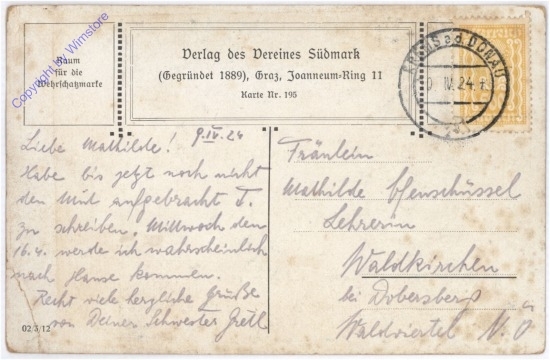 Copyright by Wimstore
Raum
für die
Wehrschatzmarke
Verlag des Vereines Südmark
(Gegründet 1889), Graz, Joanneum-Ring 11
Karte Nr. 195
KREMS a.d. DONAU
IV. 24
9.IV.24
Liebe Mathilde!
Habe bis jetzt noch nicht
den Mut aufgebracht
zu schreiben. Mittwoch den
16.4. werde ich wahrscheinlich
nach Hause kommen.
Recht viele herzliche Grüße
von Deiner Schwester Gretl
02/3/12
Fräulein
Mathilde Ofenschüssel
Lehrerin
Waldkirchen
bei Dobersberg
Waldviertel N.Ö